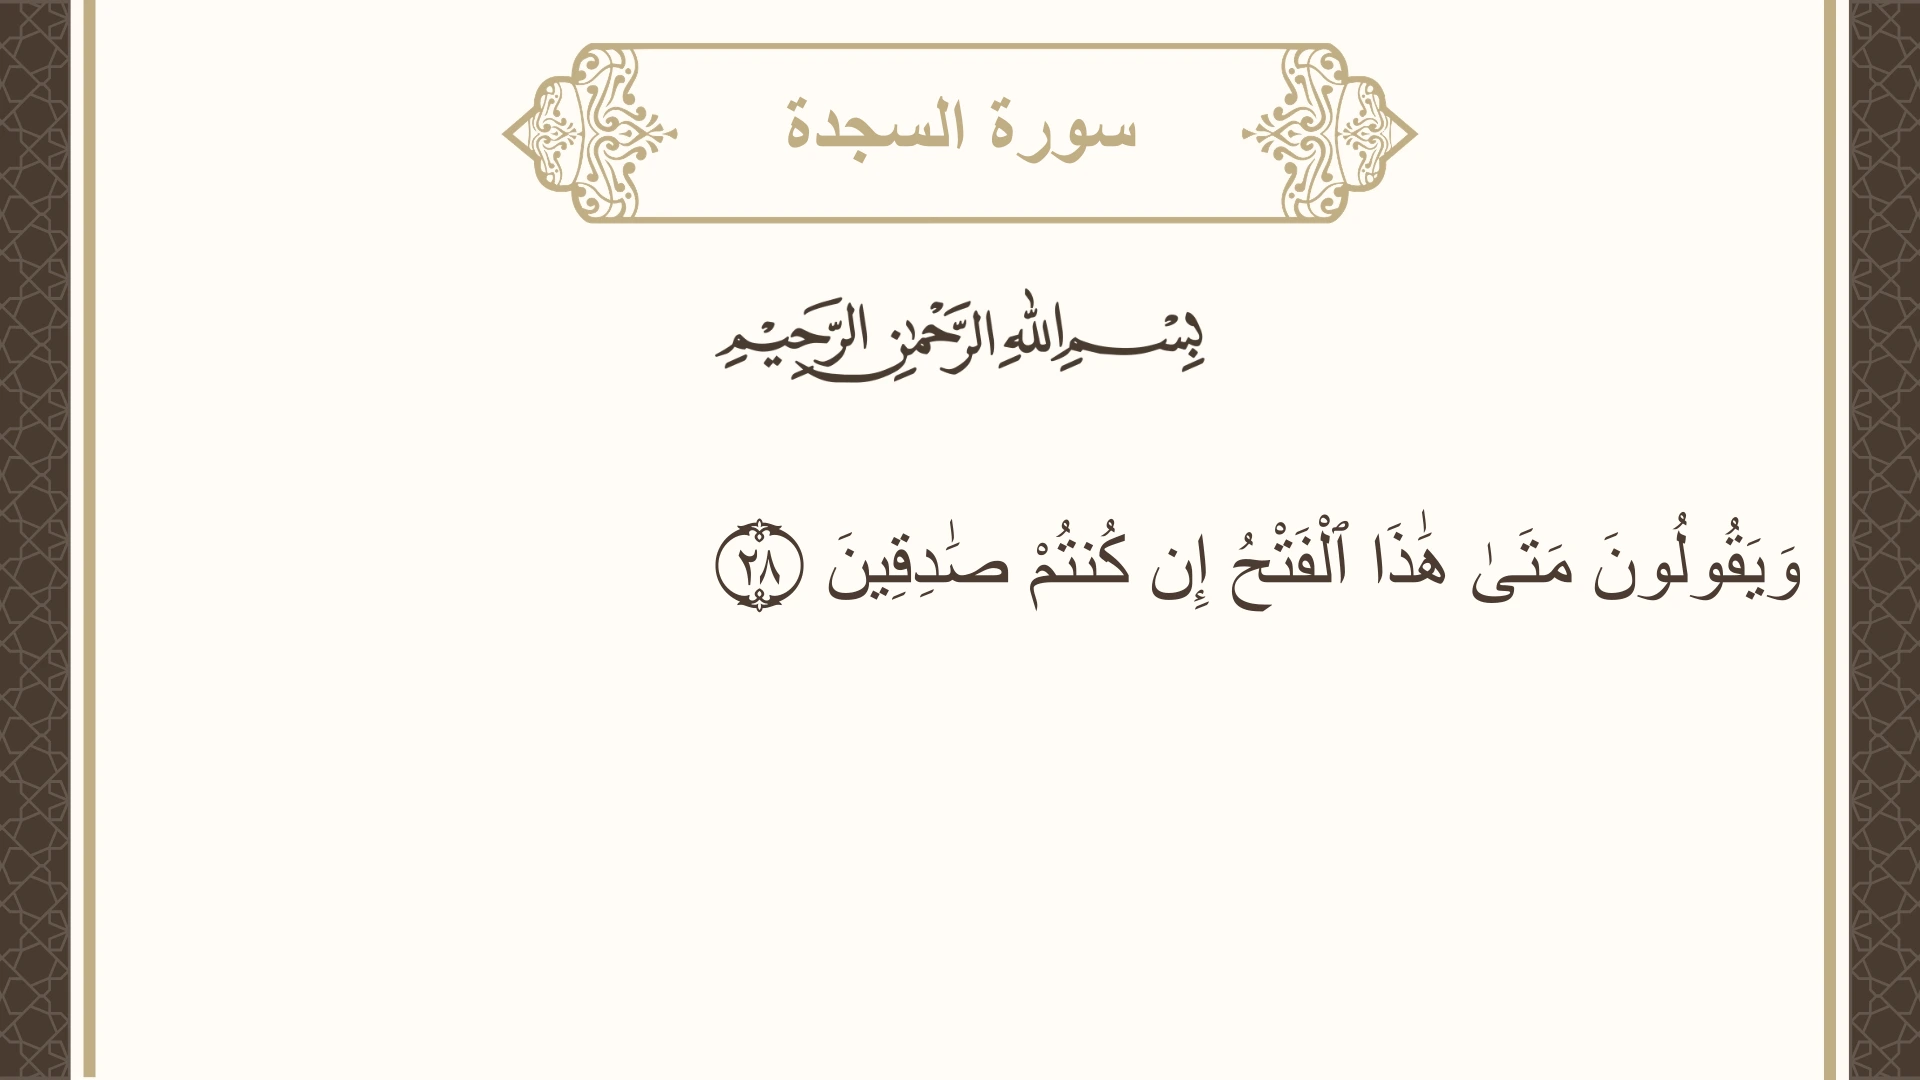 سورة السجدة
بِسْمِ اللهِ الرَّحْمٰنِ الرَّحِيْمِ
وَيَقُولُونَ مَتَىٰ هَٰذَا ٱلْفَتْحُ إِن كُنتُمْ صَٰدِقِينَ ٢٨